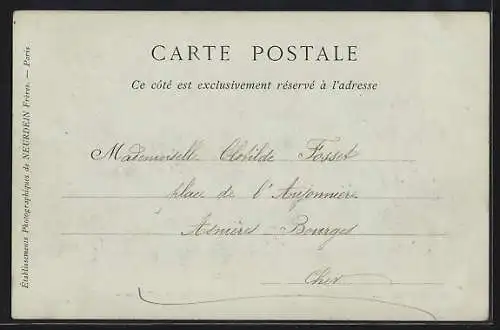 CARTE POSTALE
Ce côté est exclusivement réservé à l'adresse
Mademoiselle Clotilde Fosset
place de l'
Asnières Bourges
Cher
Établissements Photographiques de NEURDEIN Frères. — Paris